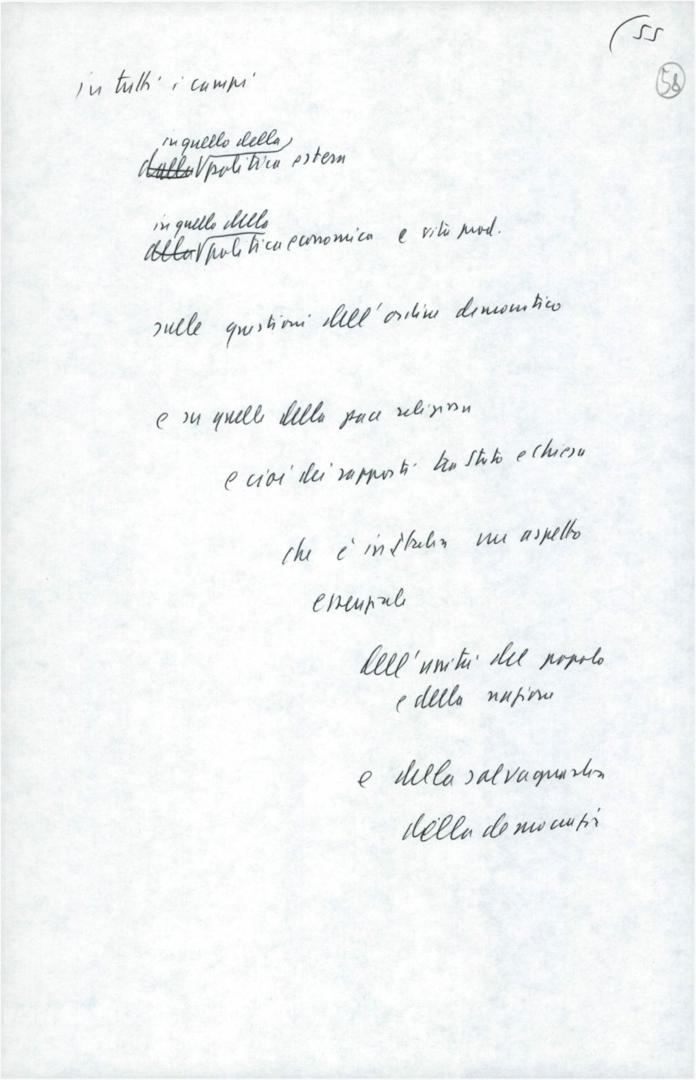 55
58
in tutti i campi
in quello della
dalla politica estera
in quello della
della politica economica e vita prod.
sulle questioni dell'ordine democratico
e su quelle della pace religiosa
e cioè dei rapporti tra Stato e Chiesa
che è in Italia un aspetto
essenziale
dell'unità del popolo
e della nazione
e della salvaguardia
della democrazia